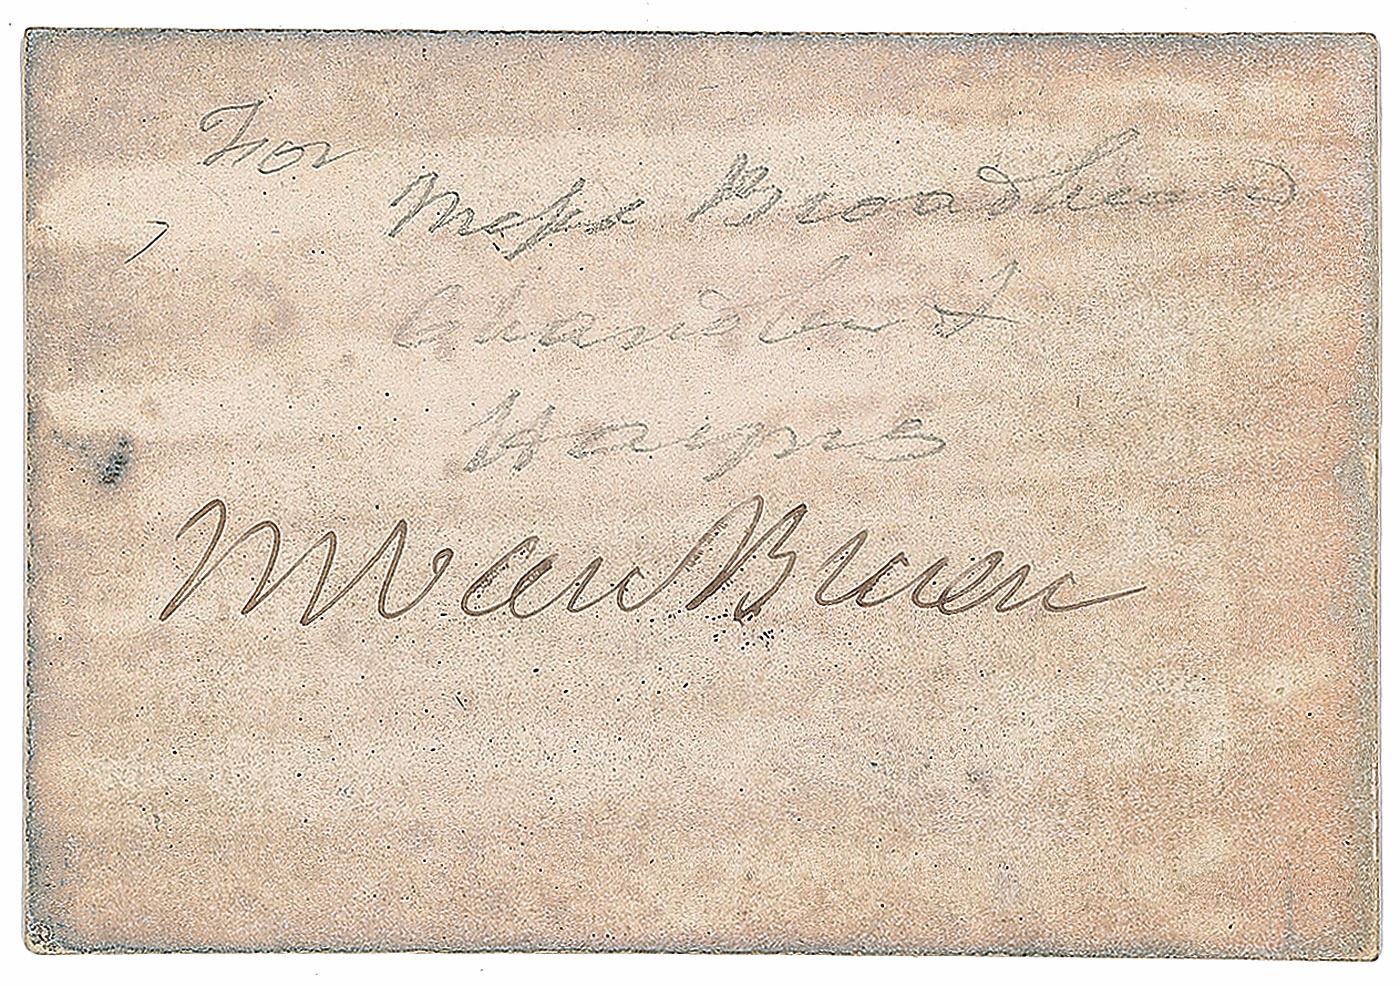 For
Messrs Broadhead
Chandler &
Haips
M Van Buren